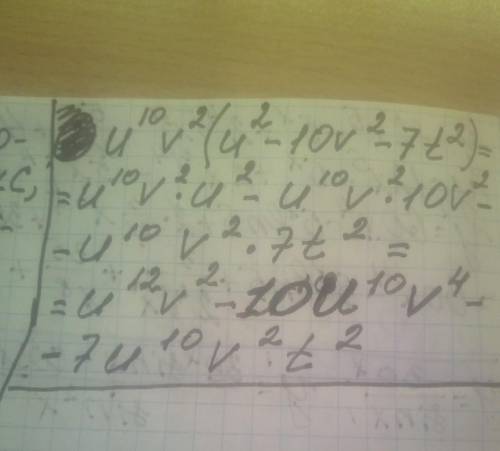 u¹⁰v²(u²-10v²-7t²)=
=u¹⁰v²·u²-u¹⁰v²·10v²-
-u¹⁰v²·7t²=
=u¹²v²-10u¹⁰v⁴-
-7u¹⁰v²t²